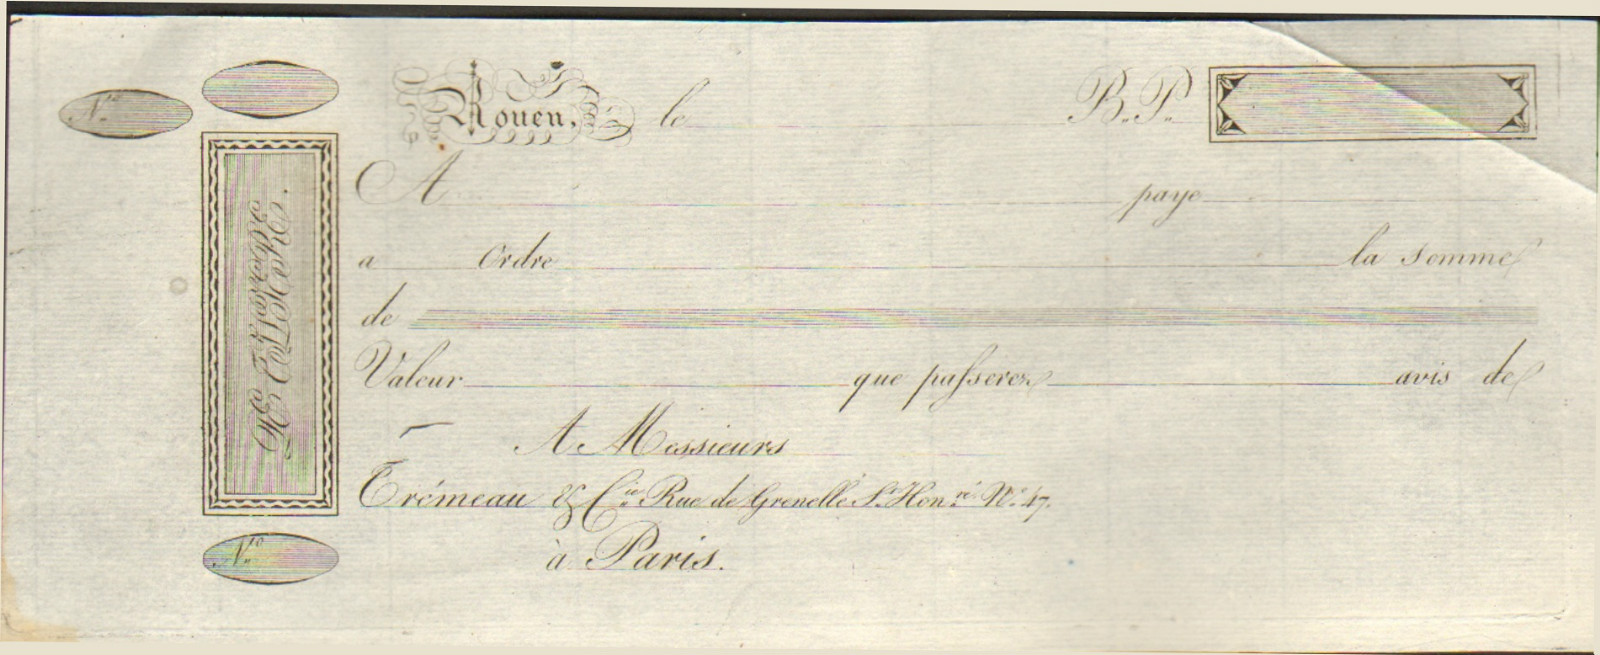 N.ro
Rouen, le
B.. P..
A paye
a ordre la somme
de
Valeur que passerez avis de
A Messieurs
Trémeau & C.ie Rue de Grenelle S.t Hon.ré N.o 47.
à Paris.
N.ro